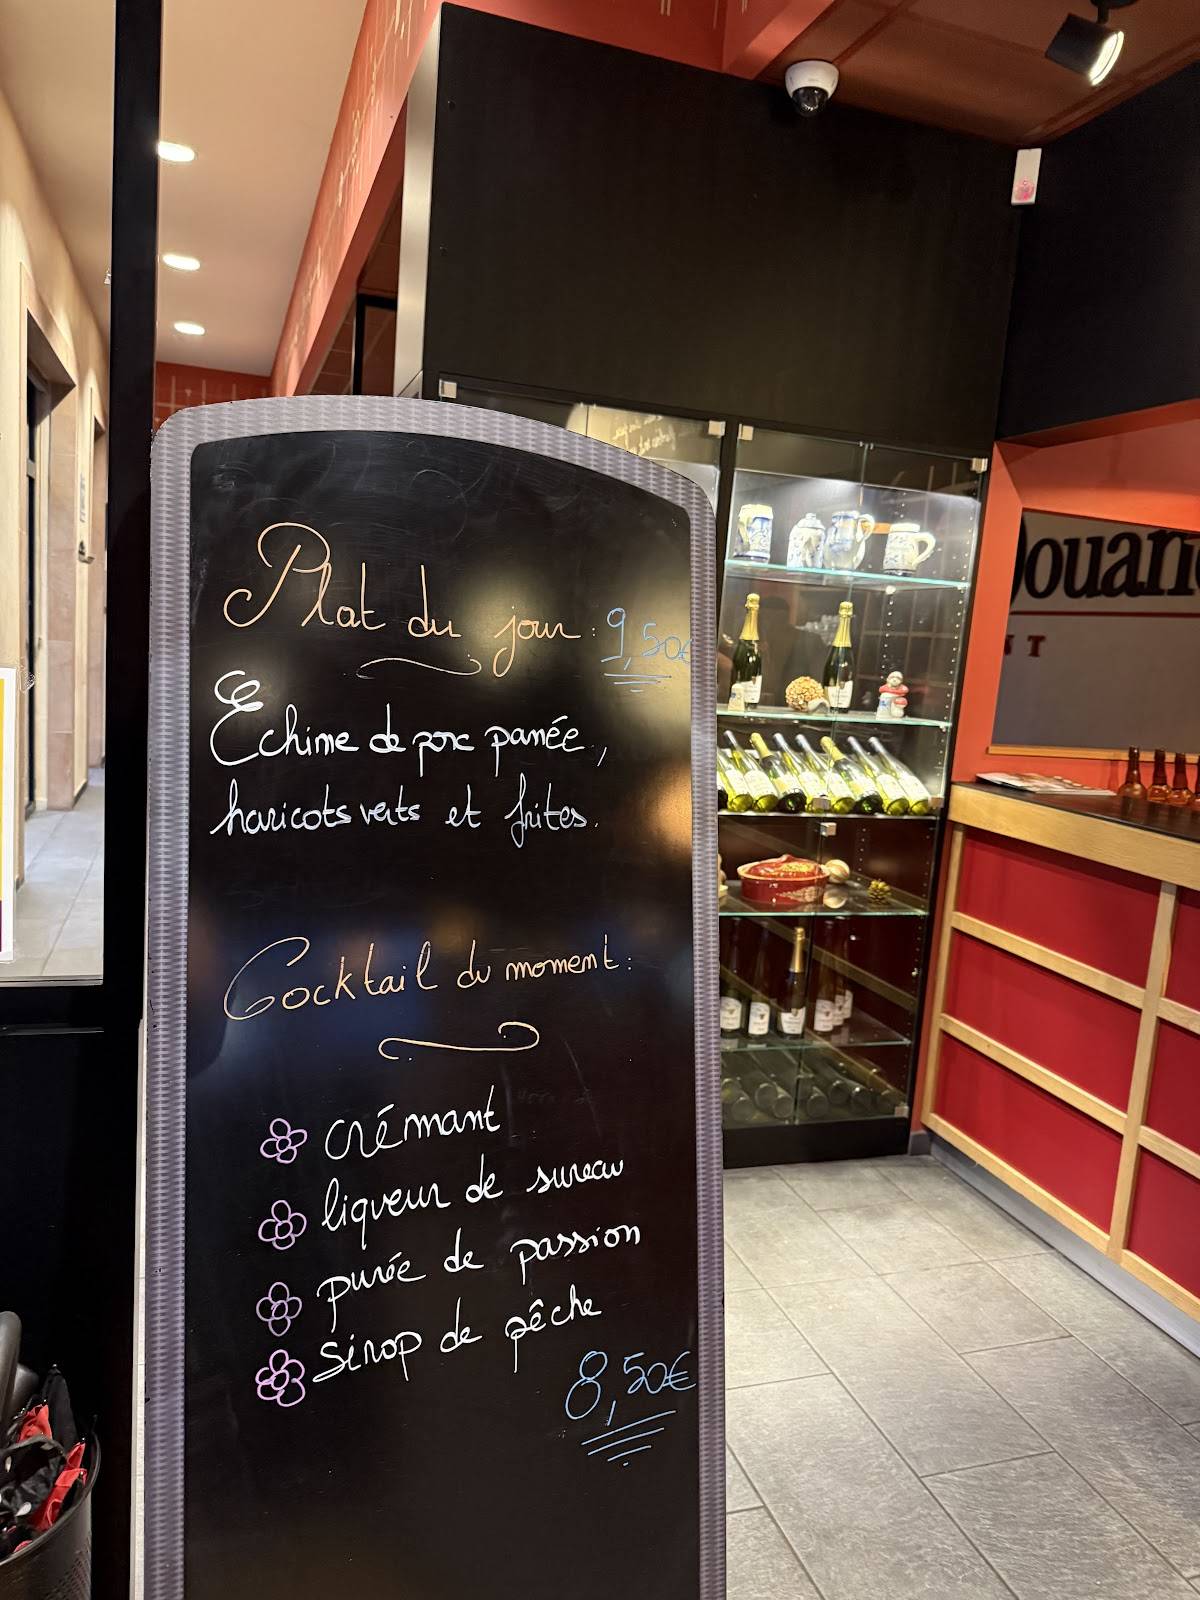 Plat du jour : 9,50€
Echine de porc panée,
haricots verts et frites.
Cocktail du moment :
crémant
liqueur de sureau
purée de passion
sirop de pêche
8,50€
Douan
NT